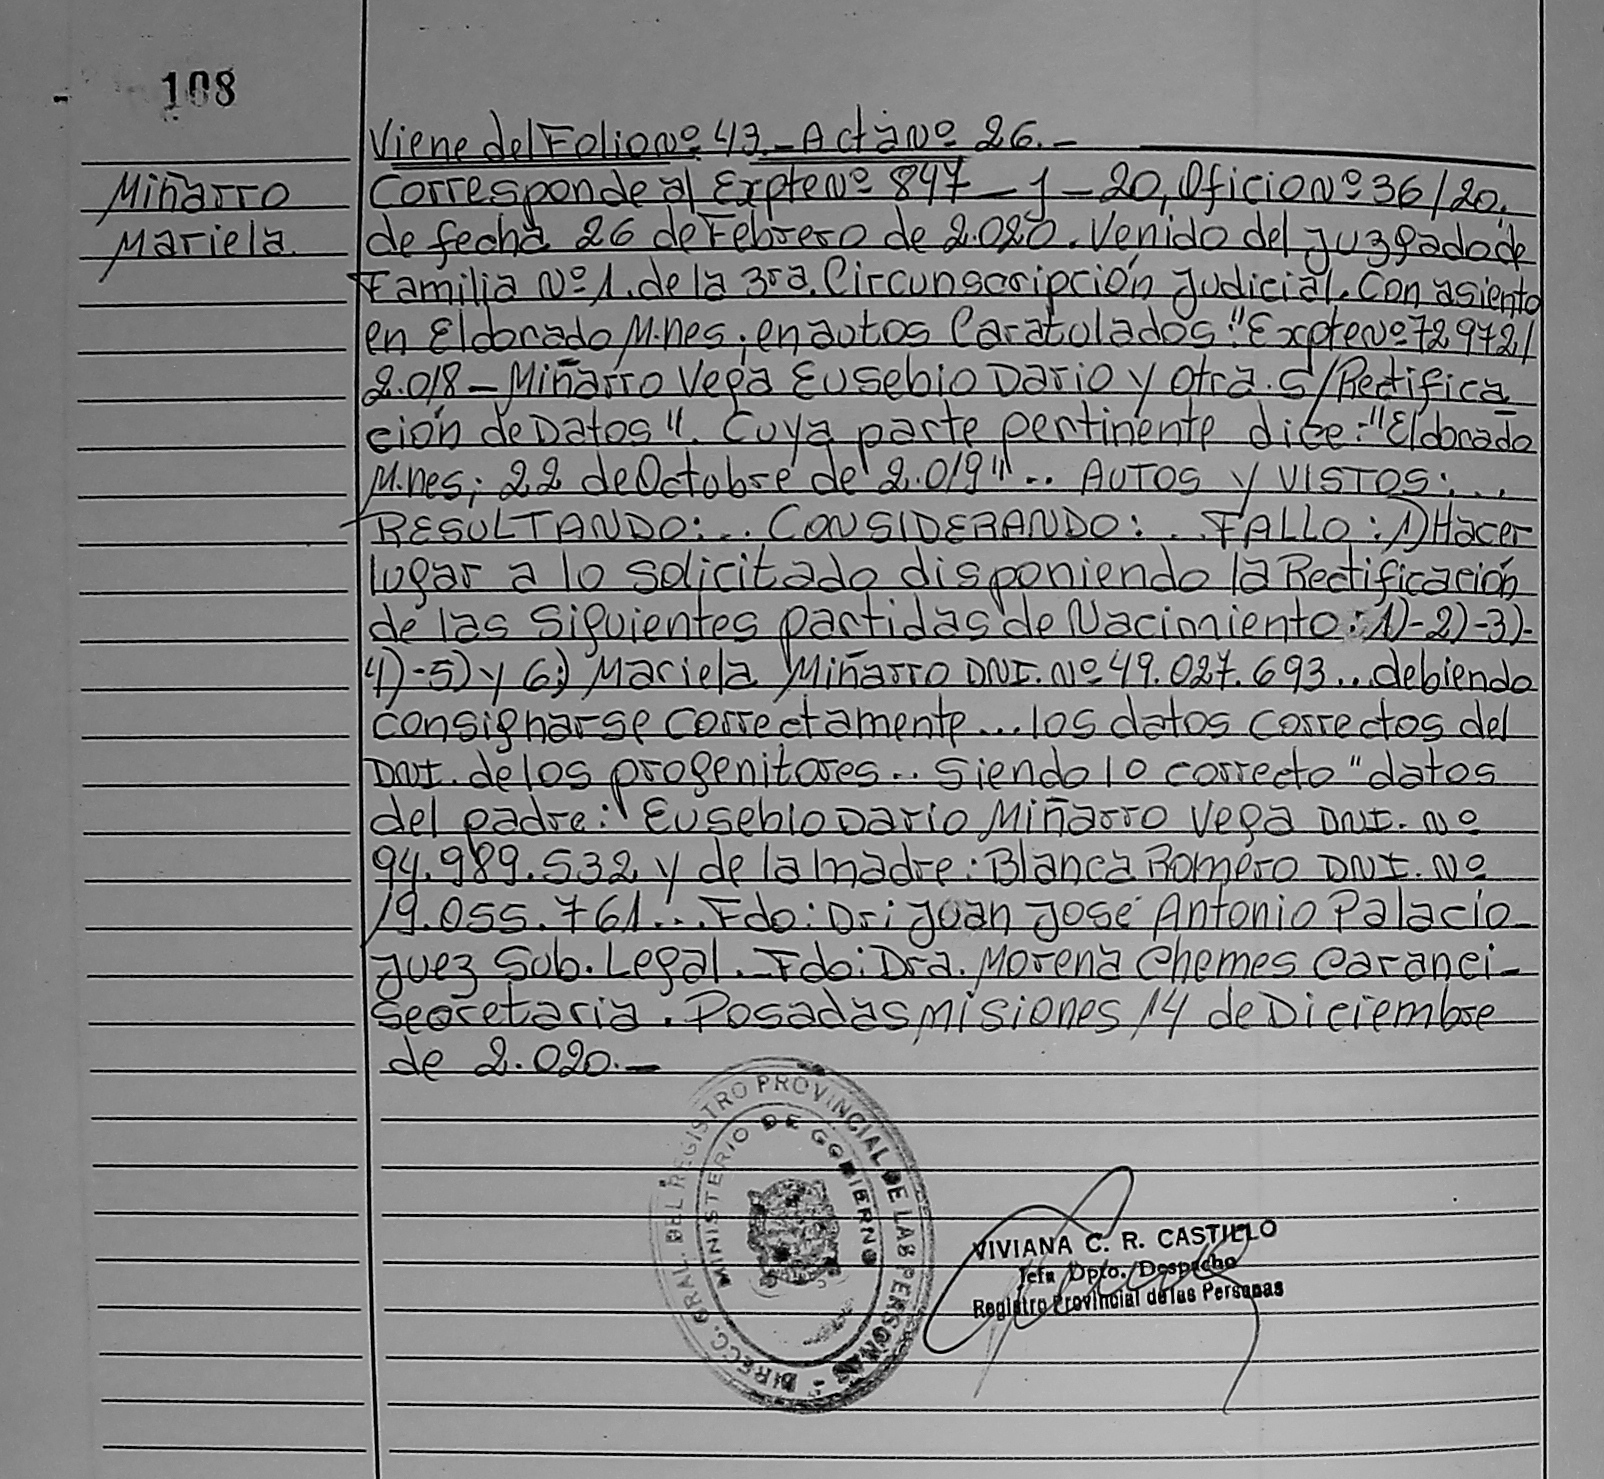 108
Viene del Folio nº 43.- Acta nº 26.-
Miñarro
Mariela.
Corresponde al Expte nº 847-J-20, Oficio nº 36/20,
de fecha 26 de Febrero de 2.020. Venido del Juzgado de
Familia Nº 1. de la 3ra. Circunscripción Judicial. Con asiento
en Eldorado M.nes; en autos Caratulados: "Expte nº 72972/
2.018 - Miñarro Vega Eusebio Dario y otra. S/Rectifica
ción de Datos". Cuya parte pertinente dice: "Eldorado
M.nes; 22 de Octubre de 2.019"... AUTOS y VISTOS:...
RESULTANDO:... CONSIDERANDO:... FALLO: 1) Hacer
lugar a lo solicitado disponiendo la Rectificación
de las siguientes partidas de Nacimiento: 1)-2)-3)-
4)-5) y 6) Mariela Miñarro DNI. Nº 49.027.693... debiendo
consignarse correctamente... los datos correctos del
DNI. de los progenitores.. siendo lo correcto "datos
del padre: Eusebio Dario Miñarro Vega DNI. Nº
94.989.532 y de la madre: Blanca Romero DNI. Nº
19.055.761... Fdo: Dr: Juan José Antonio Palacio
Juez Sub. Legal. Fdo: Dra. Morena Chemes Caranci-
Secretaria. Posadas Misiones 14 de Diciembre
de 2.020.-
DIRECC. GRAL. DEL REGISTRO PROVINCIAL DE LAS PERSONAS -
MINISTERIO DE GOBIERNO
VIVIANA C. R. CASTILLO
Jefa Dpto. Despacho
Registro Provincial de las Personas